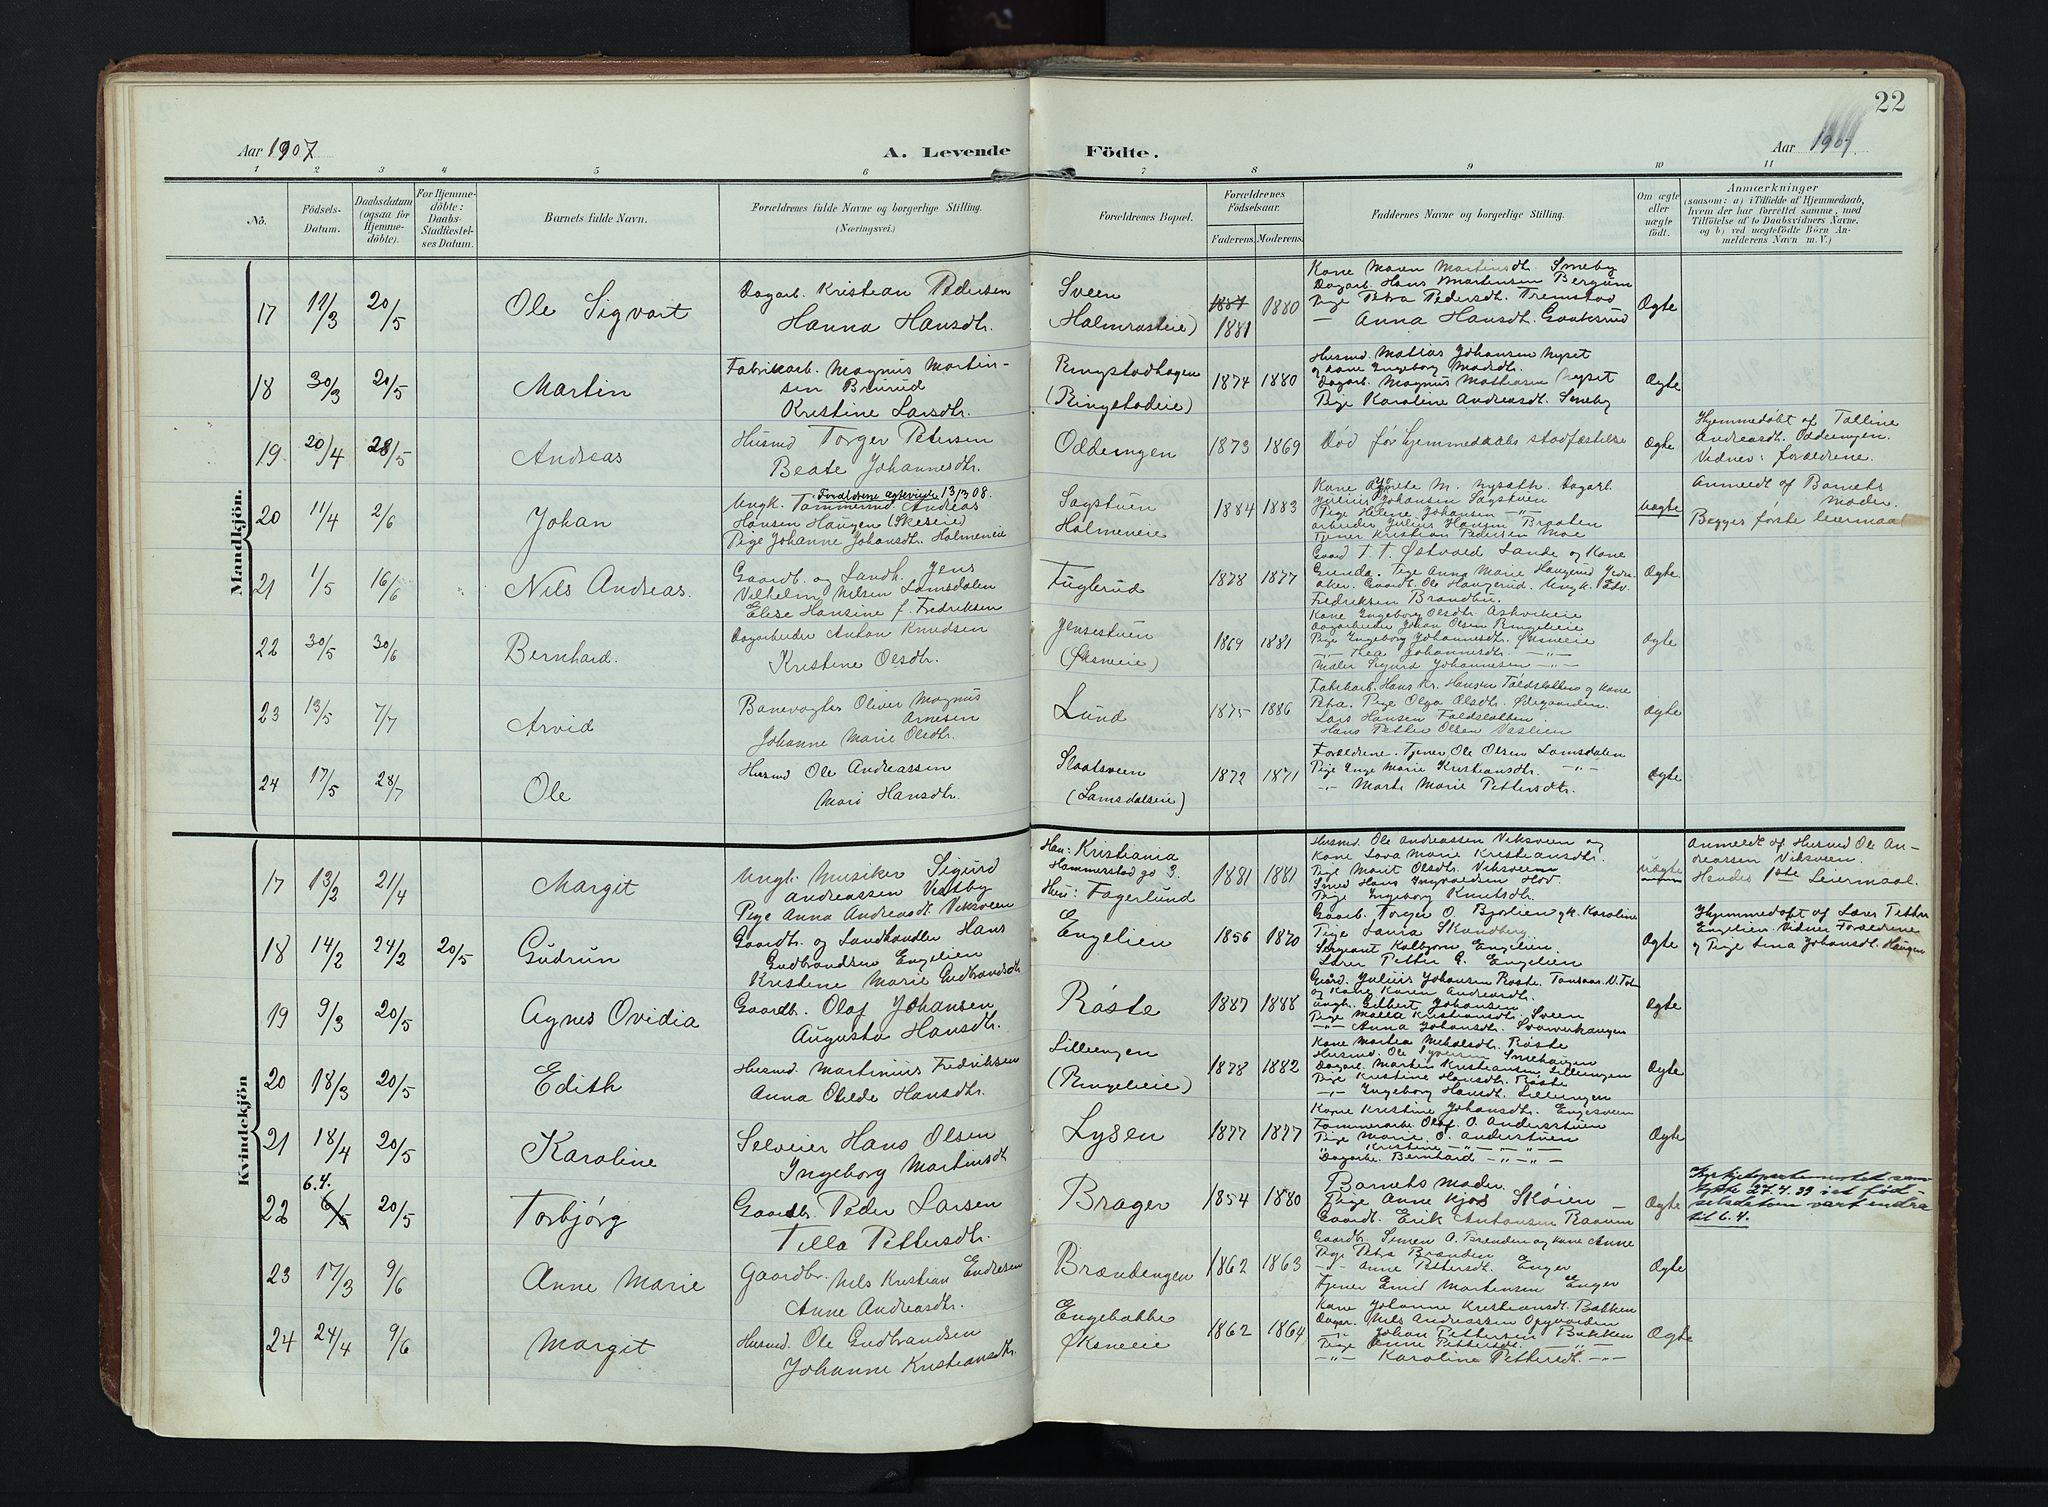 22
Aar 1907
A. Levende
Födte.
Aar 1907.
1 2 3 4 5 6 7 8 9 10 11
No.
Födsels-
Datum.
Daabsdatum
(ogsaa for
Hjemme-
döbte).
For Hjemme-
döbte:
Daabs-
Stadfæstel-
ses Datum.
Barnets fulde Navn.
Forældrenes fulde Navne og borgerlige Stilling.
(Næringsvei.)
Forældrenes Bopæl.
Forældrenes
Födselsaar.
Faderens. Moderens.
Faddernes Navne og borgerlige Stilling.
Om ægte
eller
uægte
födt.
Anmærkninger
(saasom: a) i Tilfælde af Hjemmedaab,
hvem der har forrettet samme, med
Tilföielse af to Daabsvidners Navne.
og b) ved uægtefödte Börn An-
melderens Navn m. V.)
Mandkjön.
17 11/3 20/5 Ole Sigvart
Dagarb. Kristian Pedersen
Hanna Hansdtr.
Sveen
1881 1880
1881
Kone Maren Martinsdtr. Smeby
Dagarb. Hans Martinsen Bergum
Pige Petra Pedersdtr.
Anna Hansdtr.
Ægte
18 30/3 20/5 Martin
Fabrikarb. Magnus Martin-
sen Brurud
Kristine Larsdtr.
Ringstadhagen
(Ringstadeie)
1874 1880
Husmd. Matias Johansen Nyset
og kone Ingeborg Madsdtr.
Dagarb. Magnus Mathiasen Nyset
Pige Karoline Andreasdtr. Smeby
Ægte
19 20/4 28/5 Andreas
Husmd Torger Petersen
Beate Johannesdtr.
Oddengen
1873 1869
Død før hjemmedaabs stadfæstelse
Ægte
Hjemmedøbt af Talline
Andreasdtr. Oddengen.
Vidner: forældrene.
20 11/4 2/6 Johan
Forældrene ægteviede 13/3 08.
Ungk. Tømmermd. Andreas
Hansen Haugen (Skeseie)
Pige Johanne Johansdtr. Holmeneie
Sagstuen
Holmeneie
1884 1883
Julius Johansen Sagstuen
Pige Helene Johansen -"-
arbeider Julius Hansen Braaten
Tjener Kristian Pedersen Moe
Uægte
Anmeldt af Barnets
Moder.
Begges første leiermaal
21 1/5 16/6 Nils Andreas.
Gaardb. og Landh. Jens
Vilhelm Nilsen Lamsdalen
Elise Hansine f. Fredriksen
Fuglerud
1878 1877
Gaard T. T. Østvold Lande og Kone
Gunda. Pige Anna Marie Haugerud
Gaardb. Ole Haugerud. Ungk. Edv.
Fredriksen Brandbu.
Ægte
22 30/5 30/6 Bernhard.
Dagarbeider Anton Knudsen
Kristine Olsdtr.
Jensestuen
(Øksneeie)
1869 1881
Kone Ingeborg Olsdtr.
Dagarbeider Johan Olsen Ringelieie
Pige Ingeborg Johannesdtr. Øksneeie
-"- Thea Johannesdtr. -"-
Maler Sigurd Johannesen -"-
Ægte
23 13/5 7/7 Arvid
Banevogter Oliver Magnus
Arnesen
Johanne Marie Olsdtr.
Lund
1875 1886
Fabrikarb. Hans Kr. Hansen og Kone
Petra. Pige Olga Olsdtr. Ødegaarden.
Lars Hansen
Hans Petter Olsen
Ægte
24 17/5 28/7 Ole
Husmd Ole Andreassen
Mari Hansdtr.
Slaatsveen
(Lamsdalseie)
1872 1871
Forældrene. Tjener Ole Olsen Lamsdalen
Pige Inge Marie Kristiansdtr. -"-
-"- Marte Marie Pettersdtr.
Ægte
Kvindekjön
17 13/2 21/4 Margit
Ungk. Musiker Sigurd
Andreassen Vestby
Pige Anna Andreasdtr. Viksveen
Han: Kristiania
Hammerstad gd 3.
Hun: Fagerlund
1881 1881
Husmd Ole Andreassen Viksveen og
Kone Lova Marie Kristiansdtr.
Pige Marit Olsdtr. Viksveen
Smed Hans Ingvoldsen Hov.
Pige Ingeborg Knutsdtr.
Uægte
Anmeldt af Husmd Ole An-
dreassen Viksveen.
Hendes 1ste Leiermaal.
18 14/2 24/2 20/5 Gudrun
Gaardb. og Landhandler Hans
Gudbrandsen Engelien
Kristine Marie Gudbrandsdtr
Engelien
1856 1870
Gaarb. Torger O. Bjørlien gk. Karoline
Pige Laura Strandberg
Sergeant Kolbjørn Engelien.
Lærer Petter G. Engelien
Ægte
Hjemmedøbt af Lærer Petter
Engelien. Vidner Forældrene
og Pige Lina Johansdtr. Haugen
19 9/3 20/5 Agnes Ovidia
Gaardb. Olaf Johansen
Augusta Hansdtr.
Røste
1887 1888
Gaard. Julius Johansen Røste.
og Kone Karen Andreasdtr.
Ungk. Gilbert Johansen
Pige Malla Kristiansdtr. Sveen
-"- Anna Johansdtr.
Ægte
20 18/3 20/5 Edith
Husmd. Martinius Fredriksen
Anna Otilde Hansdtr.
Lilleengen
(Ringelieie)
1878 1882
Kone Martea Mikalsdtr. Røste
Husmd. Ole Syversen Smehaugen
Dagarb. Marten Kristiansen Lilleengen
Pige Kristine Hansdtr. Røste
-"- Ingeborg Hansdtr. Lilleengen
Ægte
21 18/4 20/5 Karoline
Selveier Hans Olsen
Ingeborg Martinsdtr
Lysen
1877 1877
Kone Kristine Johansdtr. Engesveen
Tømmerarb. Olaf O. Andersstuen
Pige Marie O. Anderstuen
" Kristine -"- -"-
Dagarb. Bernhard -"- -"-
Ægte
6.4.
22 6/5 20/5 Torbjørg
Gaardbr. Peder Larsen
Tilla Pettersdtr.
Brager
1854 1880
Barnets Moder.
Pige Anne Kjos
Gaardb. Erik Antonsen Raaum
Ægte
Kyrkjedepartementet sam-
tykte 27.4.39 i at fød-
selsdatoen vart endra
til 6.4.
23 17/3 9/6 Anne Marie
Gaardbr. Nils Kristian Endresen
Anne Andreasdtr.
Brændengen
1862 1863
Gaardb. Simen A. Brænden og kone Anne
Pige Petra Brænden
-"- Anne Pettersdtr. Enger
Tjener Emil Mortensen Enger
Ægte
24 24/4 9/6 Margit
Husmd. Ole Gudbrandsen
Johanne Kristiansdtr.
Engebakke
Øksneeie
1862 1864
Kone Johanne Kristiansdtr. Bakken
Nils Andreassen
-"- Johan Pettersen Bakken
Pige Anne Pettersdtr. -"-
-"- Karoline Pettersdtr. -"-
Ægte